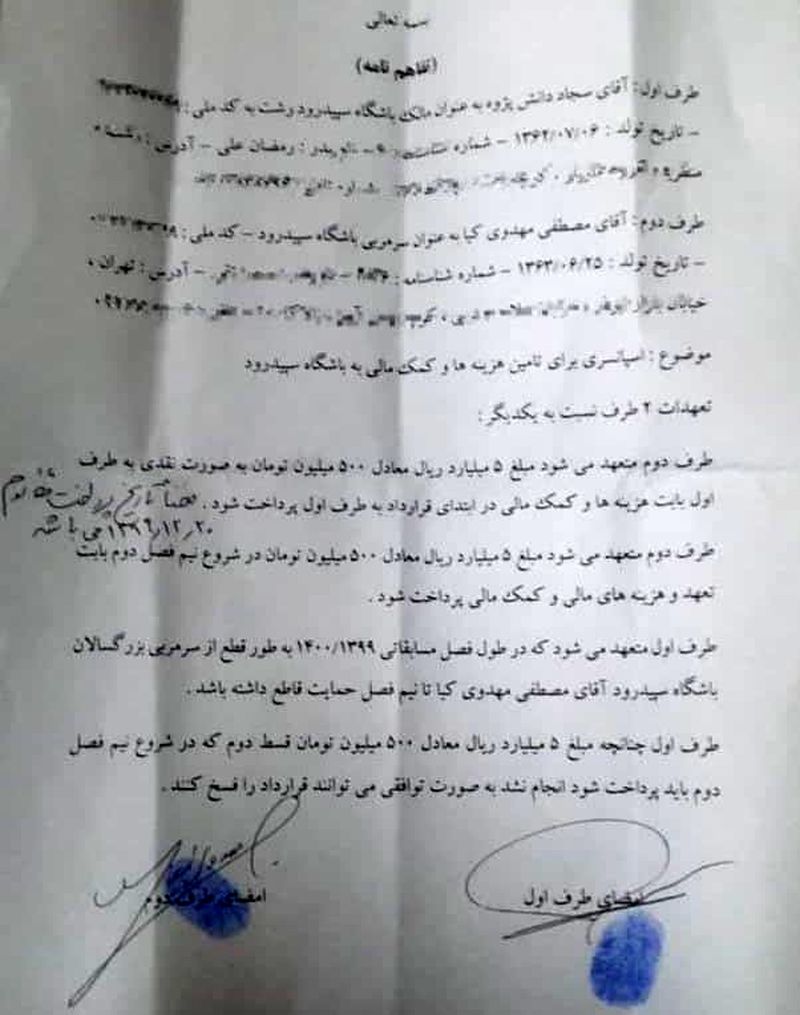 بسمه تعالی
(تفاهم نامه)
طرف اول : آقای سجاد دانش پژوه به عنوان مالک باشگاه سپیدرود رشت به کد ملی :
- تاریخ تولد : ۱۳۶۲/۰۷/۰۶ - شماره - نام پدر : رمضان علی - آدرس : رشت ،
منظریه ،
طرف دوم : آقای مصطفی مهدوی کیا به عنوان سرمربی باشگاه سپیدرود - کد ملی :
- تاریخ تولد : ۱۳۶۳/۰۶/۲۵ - شماره شناسنامه : - آدرس : تهران ،
خیابان
موضوع : اسپانسری برای تامین هزینه ها و کمک مالی به باشگاه سپیدرود
تعهدات ۲ طرف نسبت به یکدیگر :
طرف دوم متعهد می شود مبلغ ۵ میلیارد ریال معادل ۵۰۰ میلیون تومان به صورت نقدی به طرف
اول بابت هزینه ها و کمک مالی در ابتدای قرارداد به طرف اول پرداخت شود . ضمنا تاریخ پرداخت دوم
۱۳۹۹,۱۲,۲۰ می باشد
طرف دوم متعهد می شود مبلغ ۵ میلیارد ریال معادل ۵۰۰ میلیون تومان در شروع نیم فصل دوم بابت
تعهد و هزینه های مالی و کمک مالی پرداخت شود .
طرف اول متعهد می شود که در طول فصل مسابقاتی ۱۴۰۰/۱۳۹۹ به طور قطع از سرمربی بزرگسالان
باشگاه سپیدرود آقای مصطفی مهدوی کیا تا نیم فصل حمایت قاطع داشته باشد .
طرف اول چنانچه مبلغ ۵ میلیارد ریال معادل ۵۰۰ میلیون تومان قسط دوم که در شروع نیم فصل
دوم باید پرداخت شود انجام نشد به صورت توافقی می توانند قرارداد را فسخ کنند .
امضای طرف اول
امضای طرف دوم